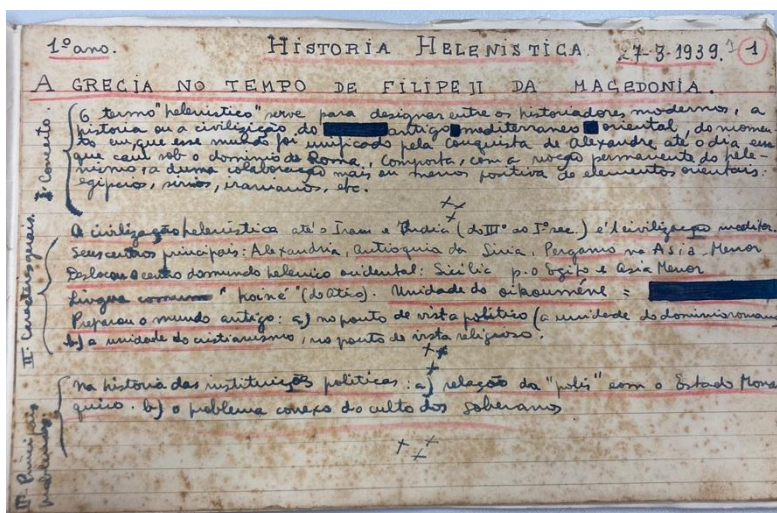 1º ano. HISTORIA HELENISTICA. 27-3-1939. 1
A GRECIA NO TEMPO DE FILIPE II DA MACEDONIA.
I. Conceito.
O termo "helenistico" serve para designar entre os historiadores modernos, a
historia ou a civilização do antigo mediterraneo oriental, do momen
to em que esse mundo foi unificado pela conquista de Alexandre até o dia em
que caiu sob o dominio de Roma, comporta, com a noção permanente do hele-
nismo, a duma colaboração mais ou menos positiva de elementos orientais:
egipcios, sirios, iranianos, etc.
II. Caracteres gerais.
A civilização helenistica até o Iram e India (do IIIº ao Iº sec.) é 1 civilização mediter.
Seus centros principais: Alexandria, Antioquia da Siria, Pergamo na Asia Menor
Deslocou o centro do mundo helenico ocidental: Sicilia p. o Egito e Asia Menor
Lingua comum "koiné" (do atico). Unidade do oikouméne =
Preparou o mundo antigo: a) no ponto de vista politico (a unidade do dominio romano
b) a unidade do cristianismo, no ponto de vista religioso.
III. Principais problemas
Na historia das instituições politicas: a) relação da "polis" com o Estado Monar
quico. b) o problema conexo do culto dos soberanos.